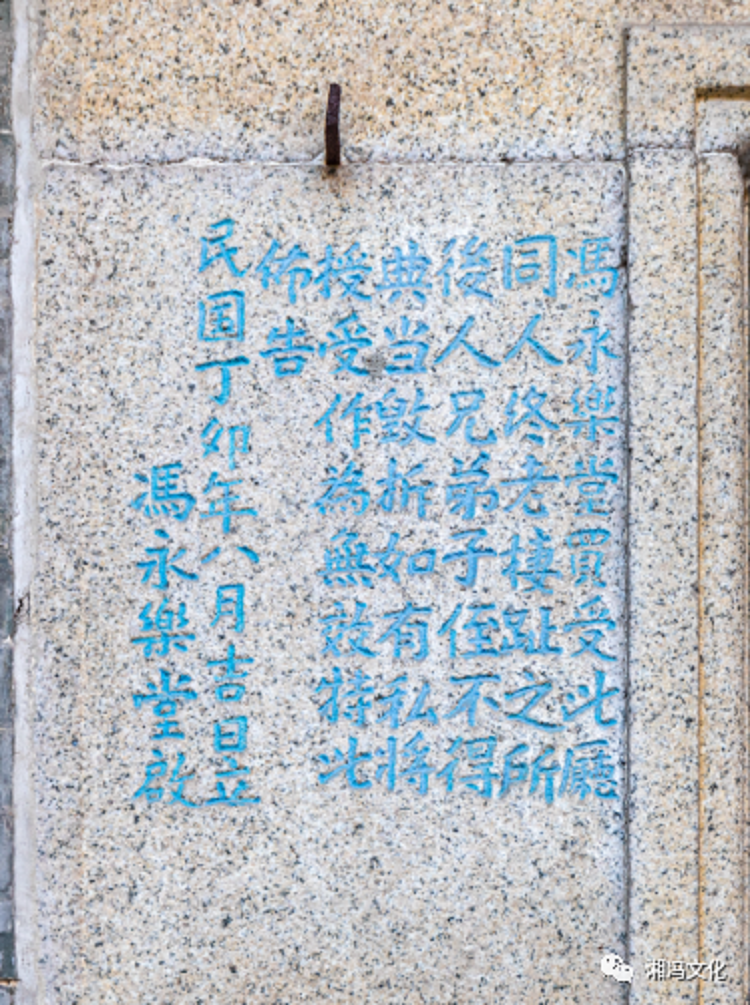 馮永樂堂買受此廳
同人终老棲趾之所
後人兄弟子侄不得
典当毀折如有私將
授受作為無效特此
佈告
民国丁卯年八月吉日立
馮永樂堂啟
湘冯文化